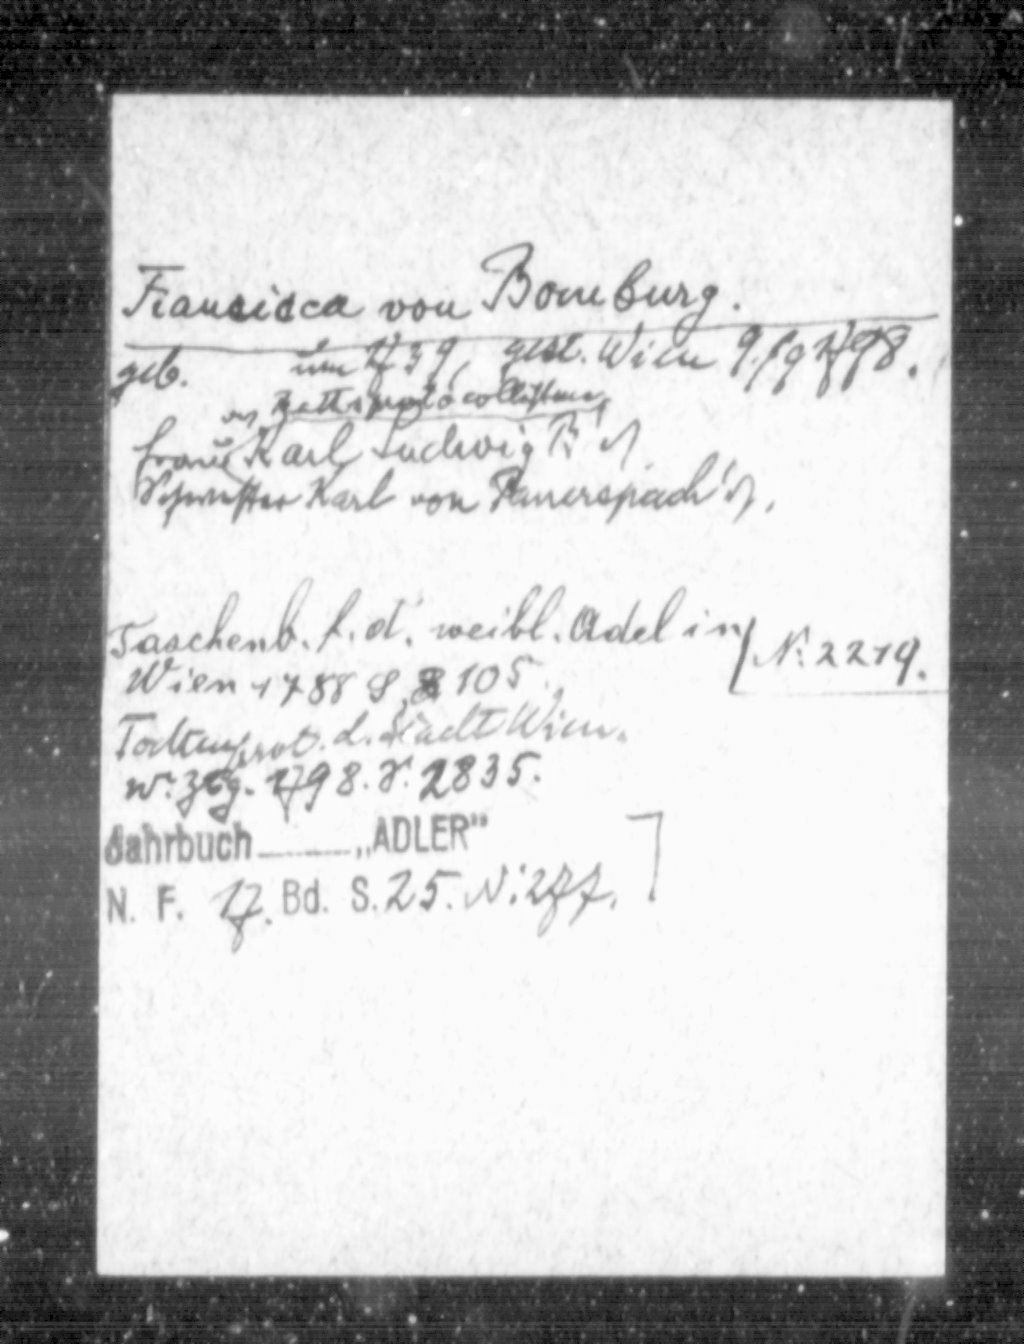 Francisca von Bomburg.
geb. um 1739, gest. Wien 9./9 1798.
Frau Karl Ludwig B's
Schwester Karl von Paurspach's.
Taschenb. f. d. weibl. Adel in
Wien 1788 S. 105. N: 2219.
Todtenprot. d. Stadt Wien.
1798. 2835.
Jahrbuch „ADLER"
N. F. 17. Bd. S. 25. N: 277.